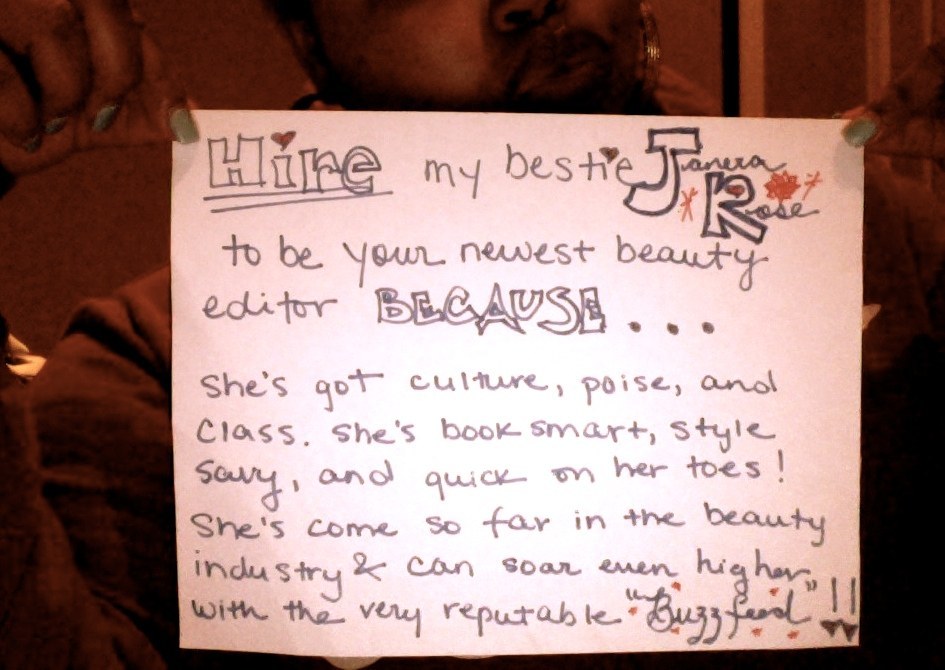 Hire my bestie Janera Rose
to be your newest beauty
editor BECAUSE...
She's got culture, poise, and
Class. She's book smart, style
Savy, and quick on her toes!
She's come so far in the beauty
industry & can soar even higher
with the very reputable "Buzzfeed"!!